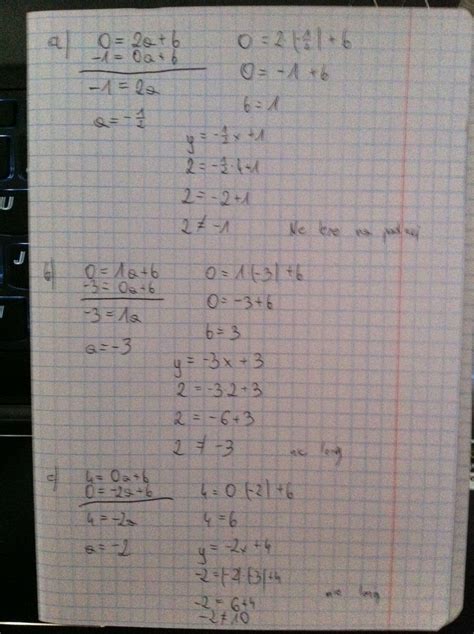 a) 0 = 2a+b
-1 = 0a+b
-1 = 2a
a = -1/2
0 = 2(-1/2)+b
0 = -1+b
b = 1
y = -1/2x+1
2 = -1/2·4+1
2 = -2+1
2 ≠ -1
Nie leży na
b) 0 = 1a+b
-3 = 0a+b
-3 = 1a
a = -3
0 = 1(-3)+b
0 = -3+b
b = 3
y = -3x+3
2 = -3·2+3
2 = -6+3
2 ≠ -3
nie leży
c) 4 = 0a+b
0 = -2a+b
4 = -2a
a = -2
4 = 0(-2)+b
4 = b
y = -2x+4
-2 = (-2)·(-3)+4
-2 = 6+4
-2 ≠ 10
nie leży
U
J
M